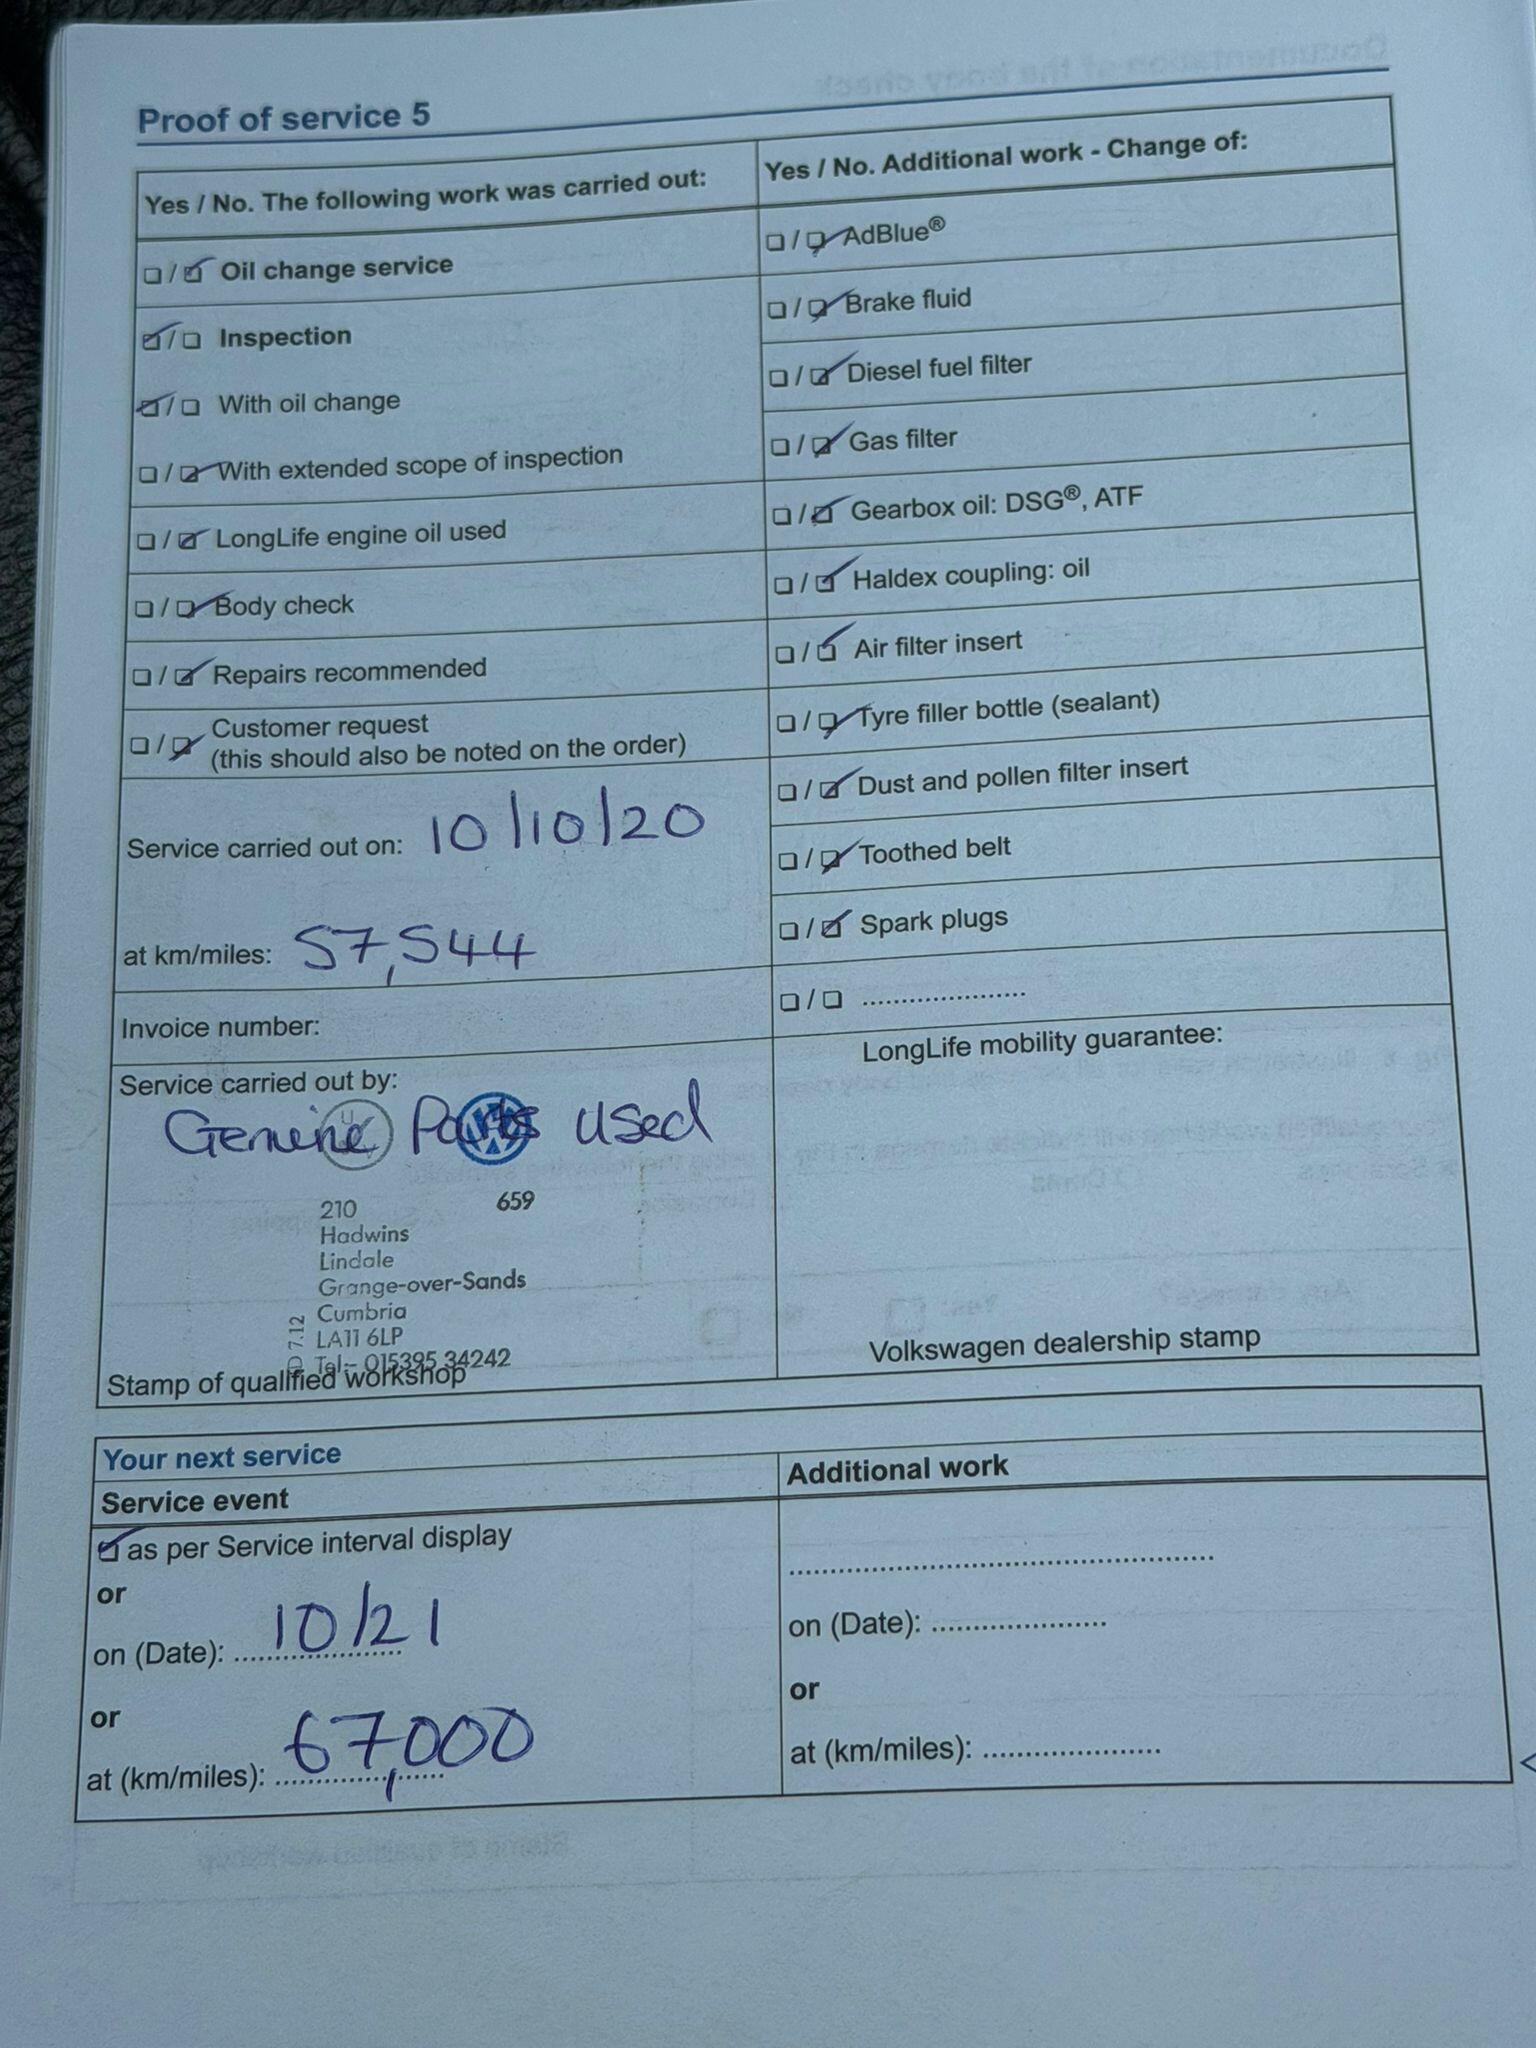 Proof of service 5
Yes / No. The following work was carried out:
❏ / ☑ Oil change service
☑ / ❏ Inspection
☑ / ❏ With oil change
❏ / ☑ With extended scope of inspection
❏ / ☑ LongLife engine oil used
❏ / ☑ Body check
❏ / ☑ Repairs recommended
❏ / ☑ Customer request
(this should also be noted on the order)
Service carried out on: 10/10/20
at km/miles: 57,544
Invoice number:
Service carried out by:
Genuine Parts used
210 659
Hadwins
Lindale
Grange-over-Sands
Cumbria
LA11 6LP
Tel:- 015395 34242
D 7.12
Stamp of qualified workshop
Yes / No. Additional work - Change of:
❏ / ☑ AdBlue®
❏ / ☑ Brake fluid
❏ / ☑ Diesel fuel filter
❏ / ☑ Gas filter
❏ / ☑ Gearbox oil: DSG®, ATF
❏ / ☑ Haldex coupling: oil
❏ / ☑ Air filter insert
❏ / ☑ Tyre filler bottle (sealant)
❏ / ☑ Dust and pollen filter insert
❏ / ☑ Toothed belt
❏ / ☑ Spark plugs
❏ / ❏ ......................
LongLife mobility guarantee:
Volkswagen dealership stamp
Your next service
Service event
☑ as per Service interval display
or
on (Date): 10/21
or
at (km/miles): 67,000
Additional work
..........................................................
on (Date): ........................
or
at (km/miles): ........................